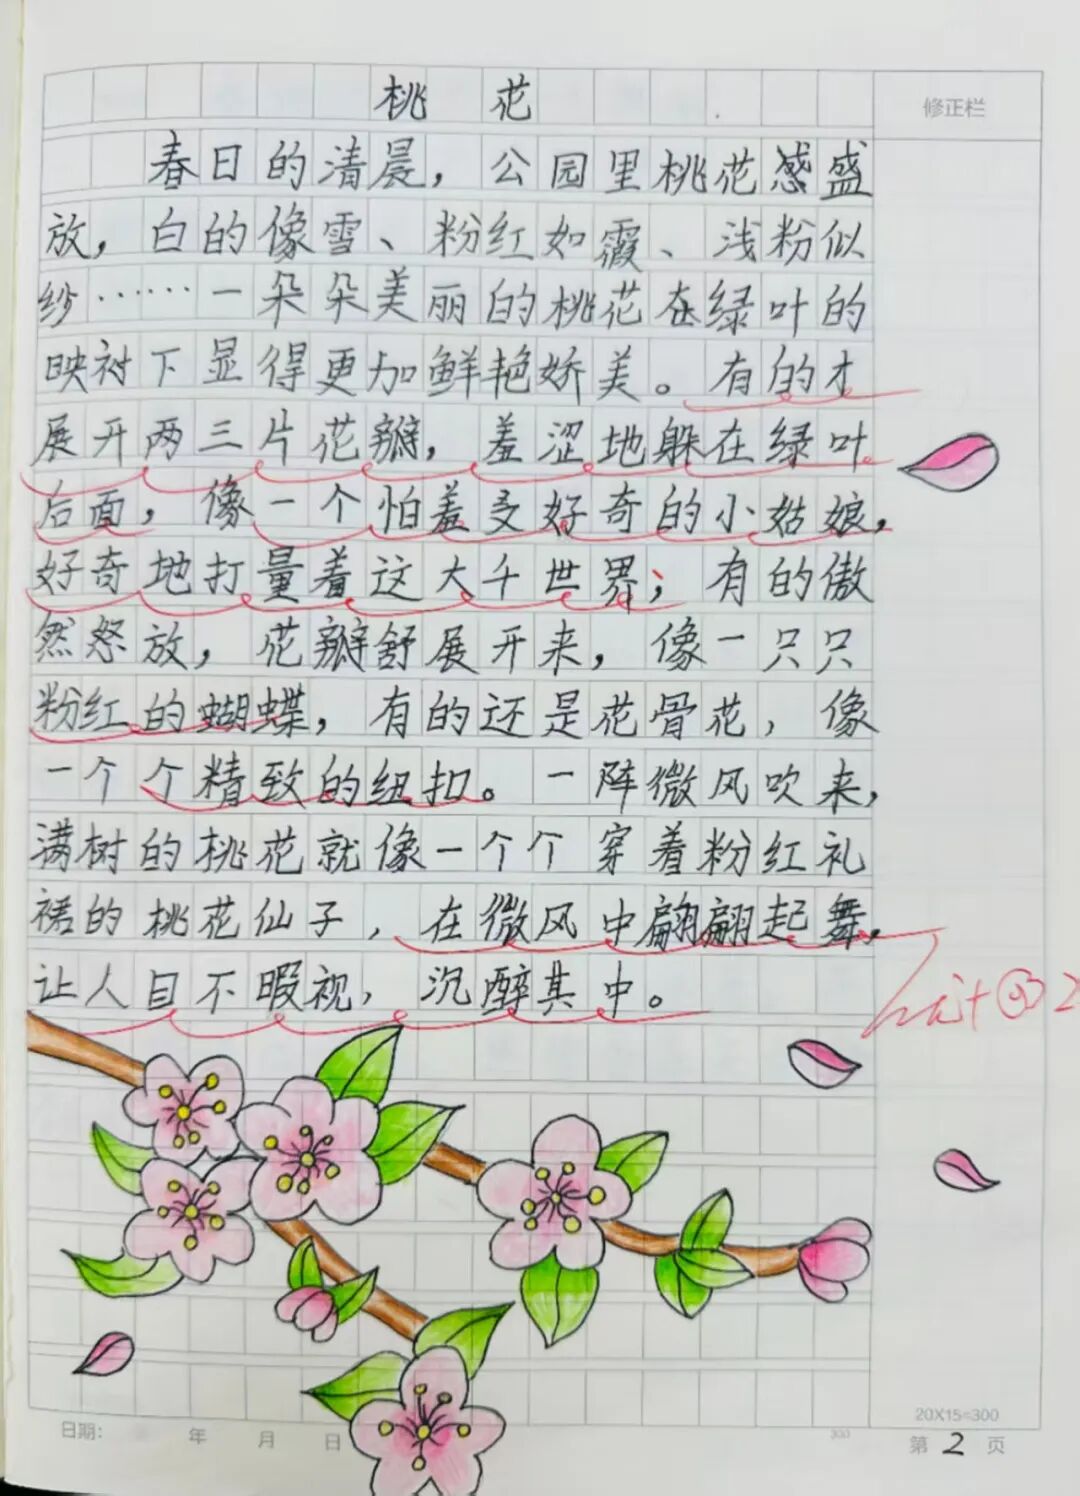 桃花
修正栏
春日的清晨，公园里桃花感盛
放，白的像雪、粉红如霞、浅粉似
纱……一朵朵美丽的桃花在绿叶的
映衬下显得更加鲜艳娇美。有的才
展开两三片花瓣，羞涩地躲在绿叶
后面，像一个怕羞又好奇的小姑娘，
好奇地打量着这大千世界；有的傲
然怒放，花瓣舒展开来，像一只只
粉红的蝴蝶，有的还是花骨花，像
一个个精致的纽扣。一阵微风吹来，
满树的桃花就像一个个穿着粉红礼
裙的桃花仙子，在微风中翩翩起舞，
让人目不暇视，沉醉其中。
20X15=300
日期： 年 月 日
300
第 2 页